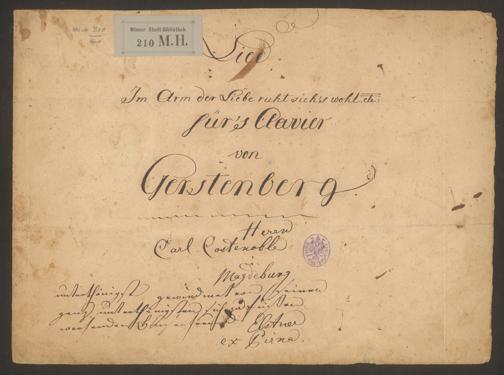 Wiener Stadt-Bibliothek.
210 M.H.
Lied
Im Arm der Liebe ruht sich's wohl etc:
für's Clavier
von
Gerstenberg
Herrn
Carl Costenoble
Magdeburg
unterthänigst gewidmet von seinem
ganz unterthänigsten
Elstner
ex Pirna.